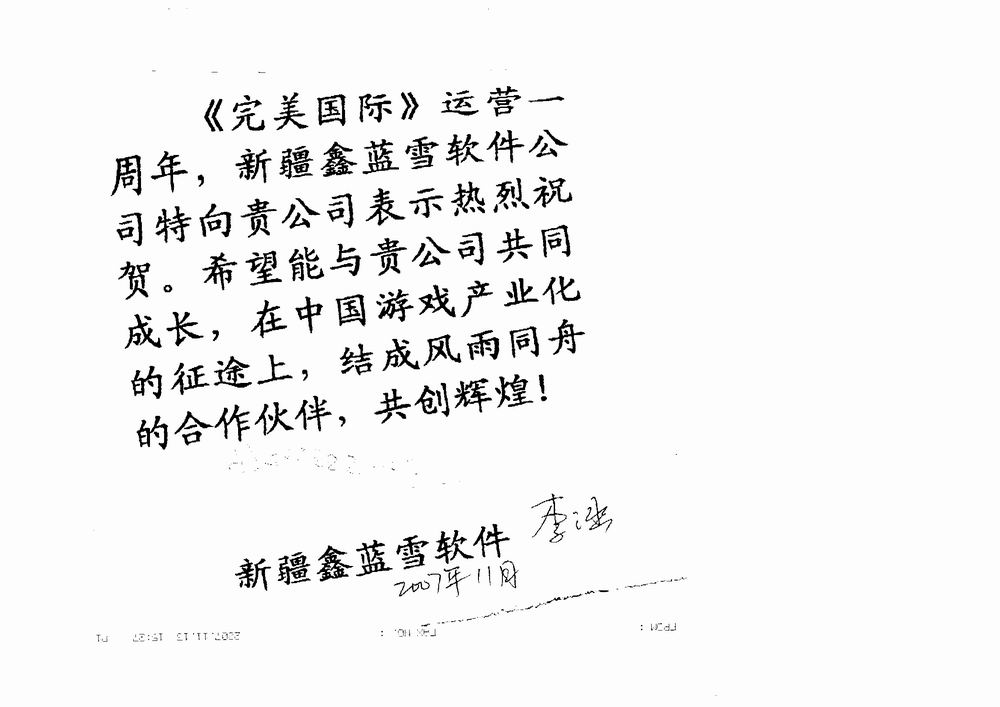 《完美国际》运营一
周年，新疆鑫蓝雪软件公
司特向贵公司表示热烈祝
贺。希望能与贵公司共同
成长，在中国游戏产业化
的征途上，结成风雨同舟
的合作伙伴，共创辉煌！
新疆鑫蓝雪软件 李
2007年11月
FROM : FAX NO. : 2007.11.13 15:37 P1